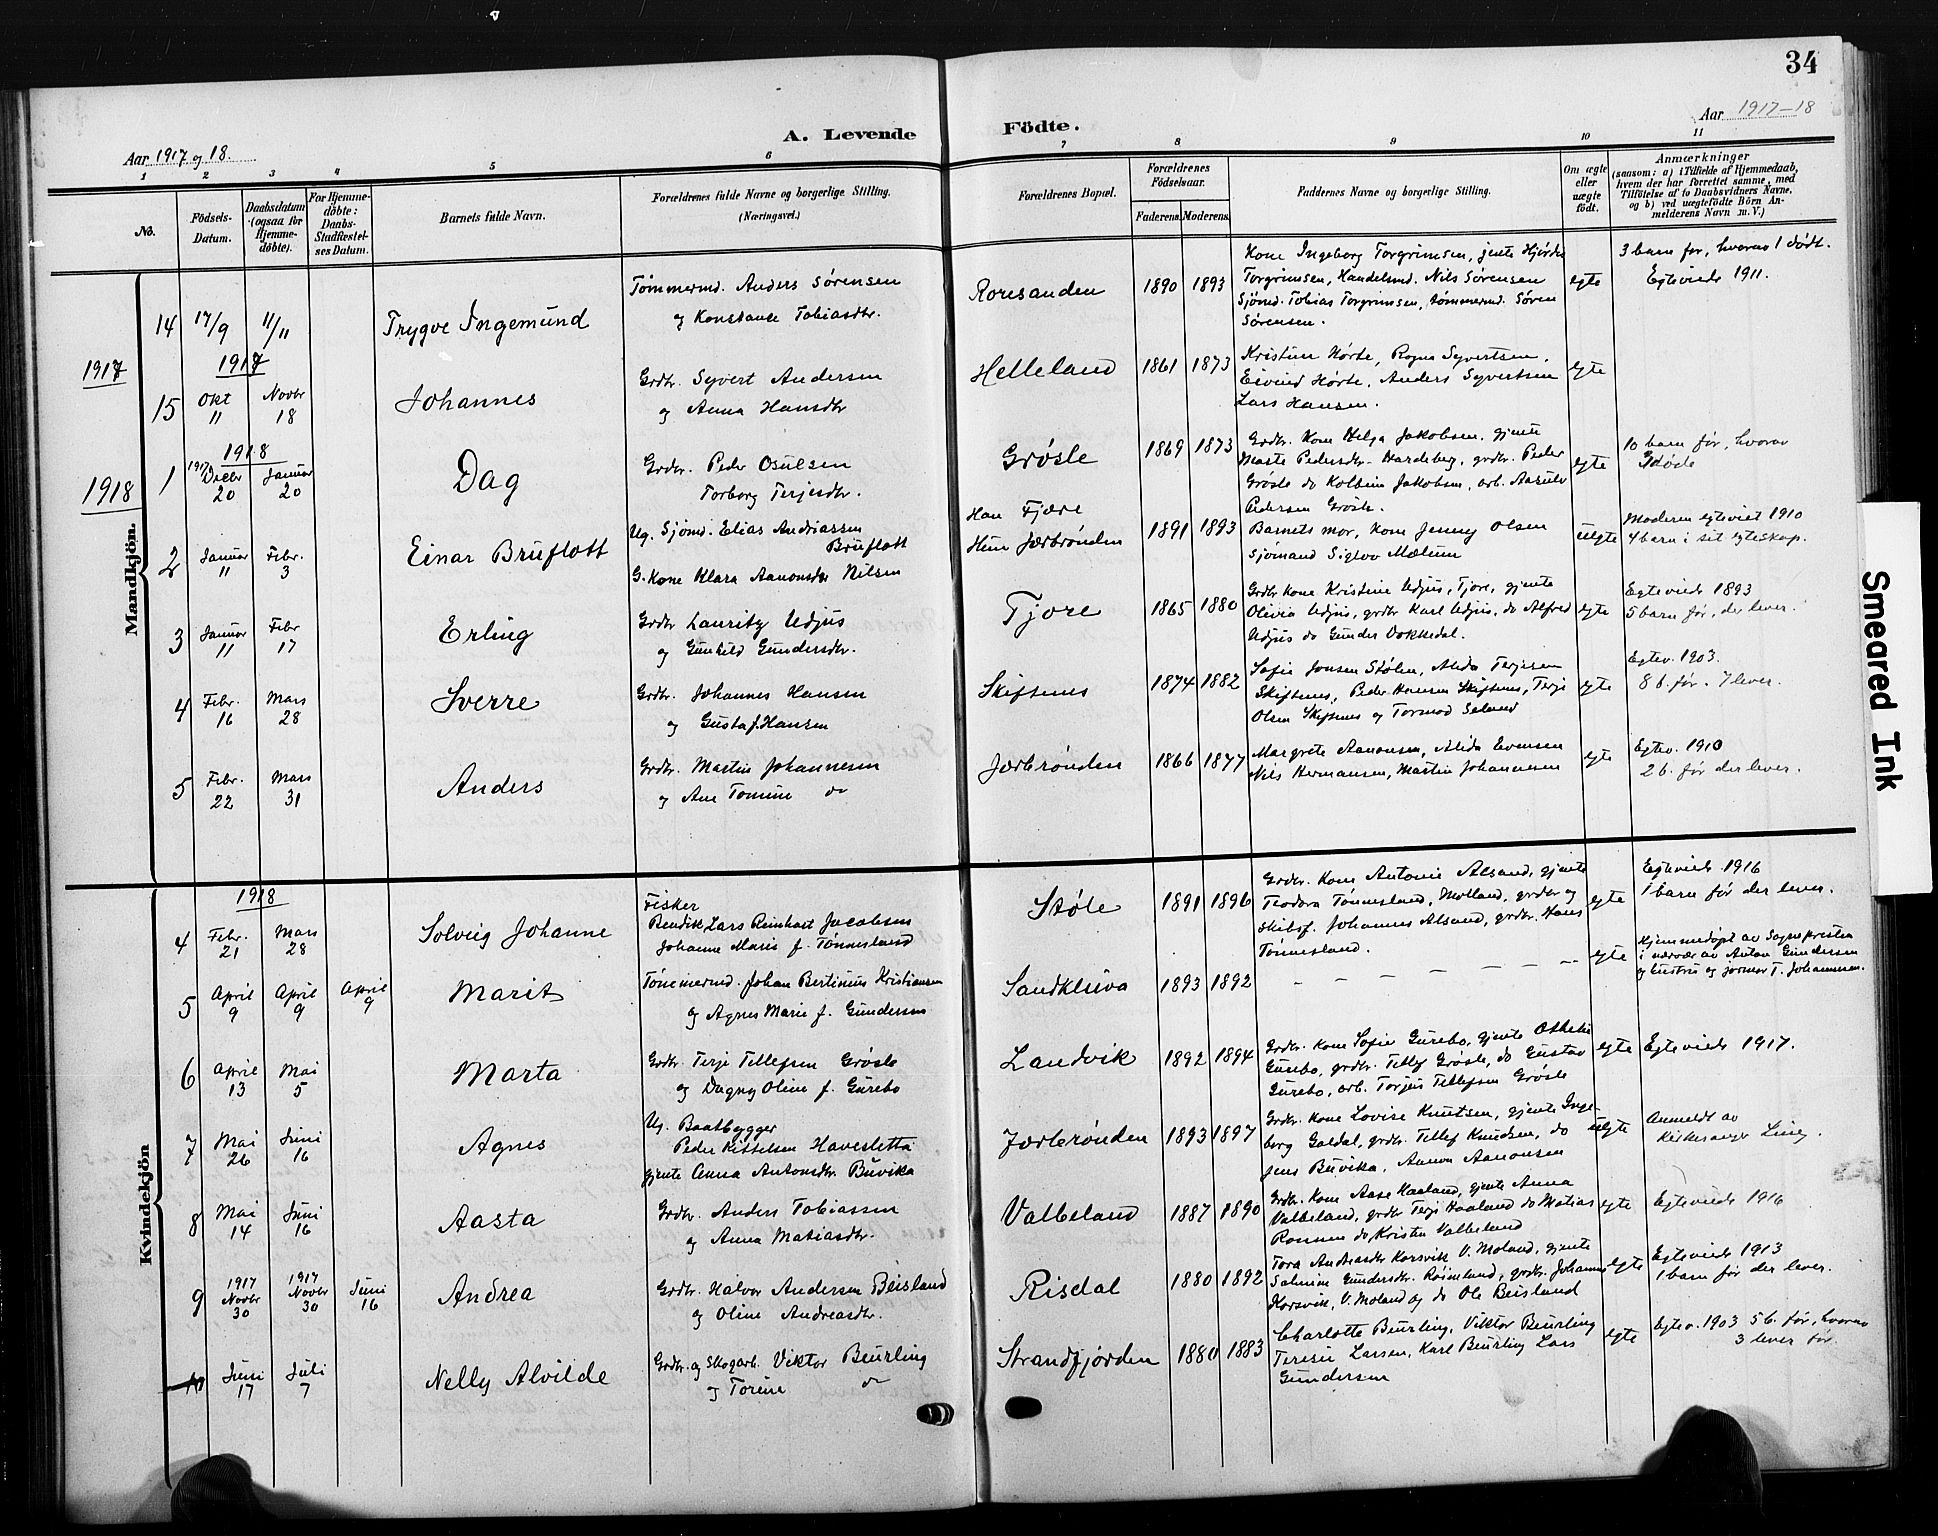 34
A. Levende Födte.
Aar 1917 og 18.
Aar 1917-18
1 2 3 4 5 6 7 8 9 10 11
No.
Födsels-Datum.
Daabsdatum (ogsaa for Hjemmedöbte).
For Hjemmedöbte: Daabs-Stadfæstelses Datum.
Barnets fulde Navn.
Forældrenes fulde Navne og borgerlige Stilling. (Næringsvei.)
Forældrenes Bopæl.
Forældrenes Födselsaar.
Faderens. Moderens.
Faddernes Navne og borgerlige Stilling.
Om ægte eller uægte födt.
Anmærkninger
(saasom: a) i Tilfælde af Hjemmedaab,
hvem der har forrettet samme, med
Tilföielse af to Daabsvidners Navne,
og b) ved uegtefödte Börn Anmelderens Navn m. V.)
Mandkjön.
14 17/9 11/11 Trygve Ingemund
Tømmermd. Anders Sørensen
og Konstanse Tobiasdtr.
Roresanden 1890 1893
Kone Ingeborg Torgrimsen, jente Hjørdis
Torgrimsen, Handelsmd. Nils Sørensen
Sjömd. Tobias Torgrimsen, tømmermd. Søren
Sørensen.
egte
3 barn før, hvorav 1 dødt.
Egteviede 1911.
1917
1917
15 Okt 11 Novbr 18 Johannes
Grdbr. Syvert Andersen
og Anna Hansdtr
Helleland 1861 1873
Kristine Hørte, Ragna Syvertsen,
Eivind Hørte, Anders Syvertsen
Lars Hansen.
egte
1918
1918
1 1917 Decbr 20 Januar 20 Dag
Grdbr. Peder Osulsen
Torborg Terjesdtr.
Grøsle 1869 1873
Grdbr. Kone Helga Jakobsen, gjente
Marte Pedersdtr. Hardeberg, grdbr. Peder
Grøsle do Kolbein Jakobsen, arb. Aasulv
Pedersen Grøsle.
egte
10 barn før, hvorav
døde
2 Januar 11 Febr. 3 Einar Bruflott
Ug. Sjömd. Elias Andriassen
Bruflott
G. Kone Klara Aanonsdtr Nilsen
Han Fjære
Hun Jærbrønden 1891 1893
Barnets mor, Kone Jenny Olsen
Sjömand Sigtov Mælum
uegte
Moderen egteviet 1910
4 barn i sit egteskap.
3 Januar 11 Febr 17 Erling
Grdbr Lauritz Udjus
og Gunhild Gundersdtr.
Tjore 1865 1880
Grdbr Kone Kristine Udjus, Tjore, gjente
Olivia Udjus, grdbr Karl Udjus, do Alfred
Udjus do Gunder Vokkedal.
egte
Egteviede 1893
5 barn før, der lever.
4 Febr. 16 Mars 28 Sverre
Grdbr. Johannes Hansen
og Gusta f. Hansen
Skiftenes 1874 1882
Sofie Jonsen Stølen, Alida Terjesen
Skiftenes, Peder Hansen Skiftenes, Terje
Olsen Skiftenes og Tormod Seland
egte
Egtev. 1903.
8 b. før. 7 lever.
5 Febr. 22 Mars 31 Anders
Grdbr. Martin Johannesen
og Ane Tomine do
Jærbrønden 1866 1877
Margrete Aanonsen, Alida Evensen
Nils Hermansen, Martin Johannesen
egte
Egtev. 1910
2 b. før der lever.
Kvindekjön
1918
4 Febr. 21 Mars 28 Solveig Johanne
Fisker
Bendik Lars Reinhart Jacobsen
Johanne Marie f. Tønnesland
Støle 1891 1896
Grdbr. Kone Antonie Alsand, gjente
Teodora Tønnesland, Motland, grdbr og
skibsf. Johannes Alsand, grdbr. Hans
Tønnesland.
egte
Egteviede 1916
1 barn før der lever.
5 April 9 April 9 April 9 Marit
Tømmermd. Johan Bertinius Kristiansen
og Agnes Marie f. Gundersen
Sandkleiva 1893 1892
- - - - - - -
egte
Hjemmedøpt av Sognepresten
i nærvær av Anton Gundersen
og hustru og jormor T. Johannesen.
6 April 13 Mai 5 Marta
Grdbr. Terje Tellefsen Grøsle
og Dagny Oline f. Gurebo
Landvik 1892 1894
Grdbr. Kone Sofie Gurebo, gjente Othelie
Gurebo, grdbr. Tellef Grøsle, do Gustav
Gurebo, arb. Torjus Tellefsen Grøsle
egte
Egteviede 1917.
7 Mai 26 Juni 16 Agnes
Ug. Baatbygger
Peder Kittelsen Haveslette
gjente Anna Antonsdtr Buvika
Jærbrønden 1893 1897
Grdbr. Kone Lovise Knutsen, gjente Inge-
borg Galdal, grdbr. Tellef Knudsen, do
Jens Buvika, Aanon Aanonsen
uegte
Anmeldt av
kirkesanger Ling.
8 Mai 14 Juni 16 Aasta
Grdbr. Anders Tobiassen
og Anna Matiasdtr.
Valbeland 1887 1890
Grdbr. Kone Aase Haaland, gjente Anna
Valbeland, grdbr Terje Haaland do Matias
do Kristen Valbeland
egte
Egteviede 1916
9 1917 Novbr 30 1917 Novbr 30 Juni 16 Andrea
Grdbr. Halvor Andersen Beisland
og Oline Andreasdtr.
Risdal 1880 1892
Tora Andreasdtr Korsvik V. Moland, gjente
Salmine Gundersdtr. Røineland, grdbr. Johannes
Korsvik, V. Moland og do Ole Beisland
egte
Egteviede 1913
1 barn før der lever.
10 Juni 17 Juli 7 Nelly Alvilde
Grdbr. og Skogarb. Viktor Beurling
og Torine do
Strandfjorden 1880 1883
Charlotte Beurling, Viktor Beurling
Teresie Larsen, Karl Beurling Lars
Gundersen
egte
Egtev. 1903 5 b. før, hvorav
3 lever før.
Smeared Ink